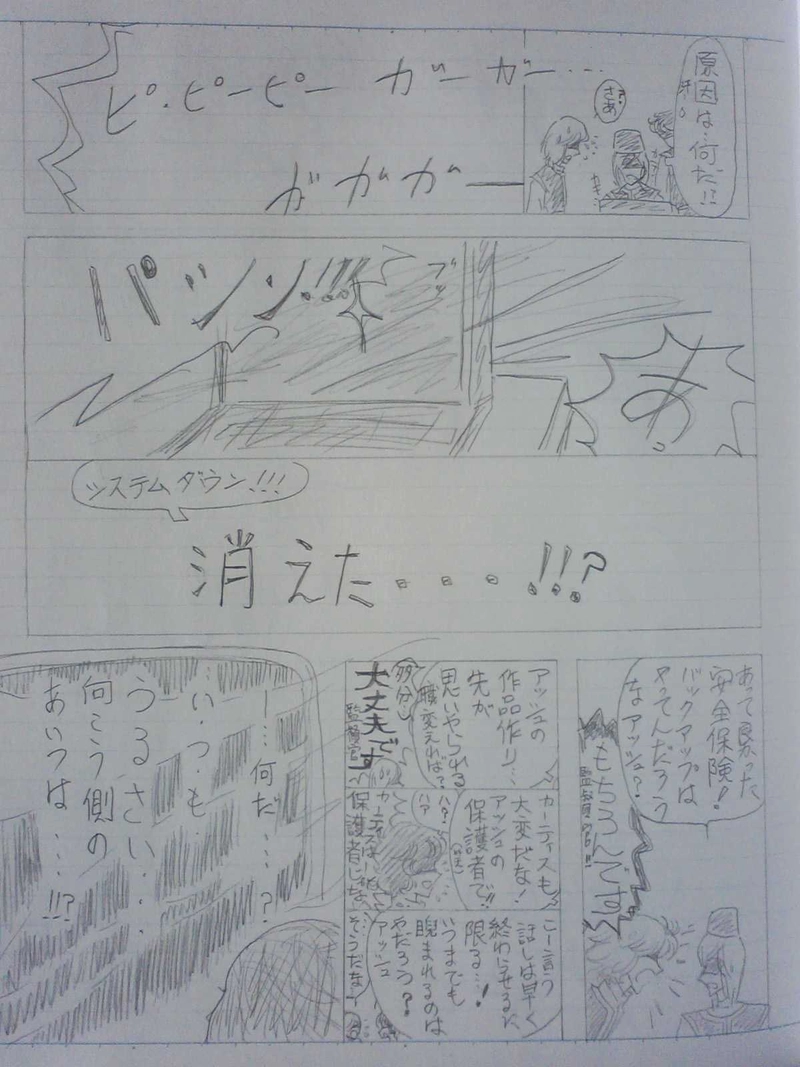 原因は…何だ!!
さあ
ピ・ピーピー ガーガー…
ガガガー
お
ブッ
パツン!!!
システムダウン!!!
消えた・・・!!?
あって良かった
安全保険!
バックアップは
やってんだろう
なアッシュ?
もちろんです
アッシュの
作品作り…
先が
思いやられる
職変えれば?
(多分)
大丈夫です
監督官
カーティスも
大変だな!
アッシュの
保護者で!!
ハ?
ハァ
保護者じゃ
こー言う
話しは早く
終わらせるに
限る…!
いつまでも
睨まれるのは
やだろう?
アッシュ
そうだな
ー…何だ…?
い・つ・も
うるさい・・・
向こう側の
あいつは…!!?